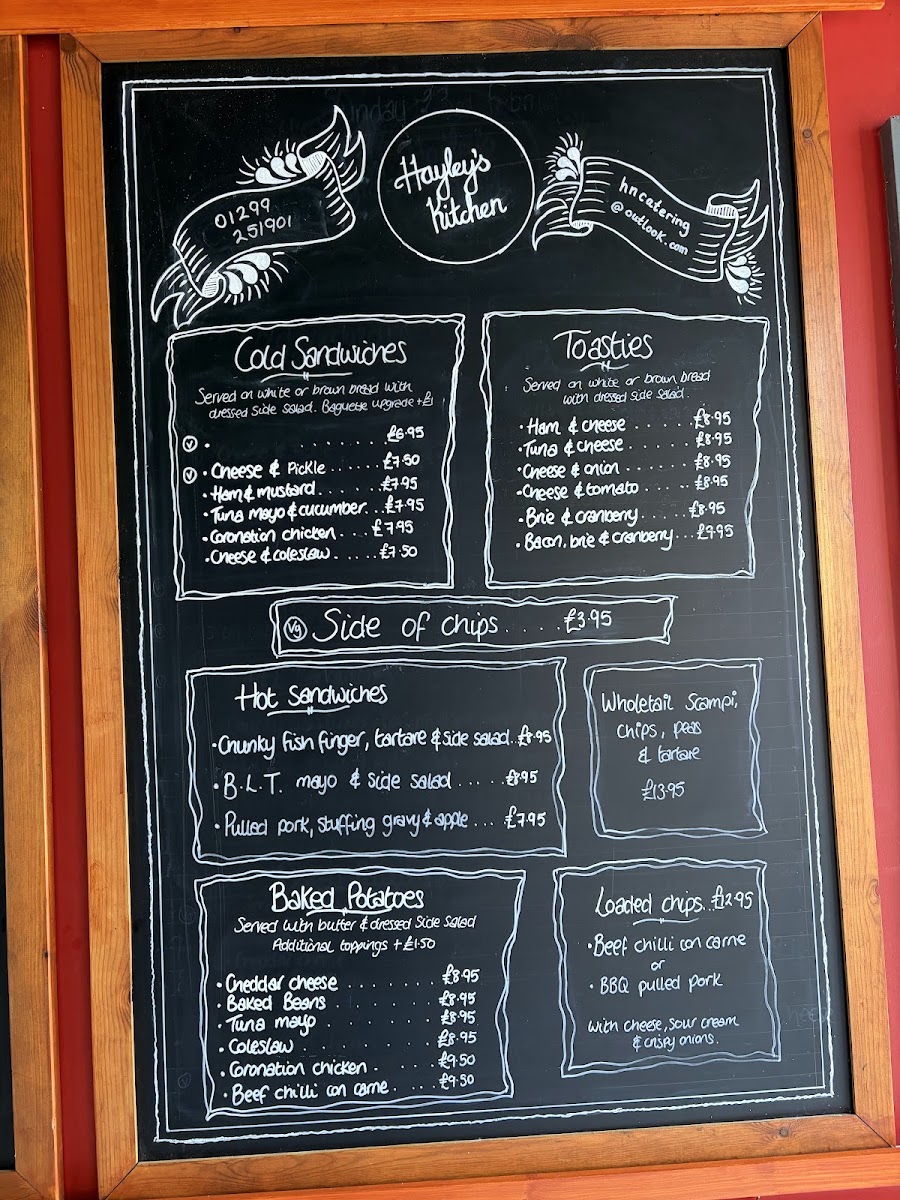 Hayley's
Kitchen
01299
251901
hncatering
@outlook.com
Cold Sandwiches
Served on white or brown bread with
dressed side salad. Baguette upgrade +£1
(V) · . . . . . . . . £6.95
(V) · Cheese & Pickle . . . . . . £7.50
· Ham & mustard . . . . . . £7.95
· Tuna mayo & cucumber . . . £7.95
· Coronation chicken . . . . £7.95
· Cheese & coleslaw . . . . . £7.50
Toasties
Served on white or brown bread
with dressed side salad.
· Ham & cheese . . . . . . £8.95
· Tuna & cheese . . . . . . £8.95
· Cheese & onion . . . . . . £8.95
· Cheese & tomato . . . . . £8.95
· Brie & cranberry . . . . . £8.95
· Bacon, brie & cranberry . . . £9.95
(Vg) Side of chips . . . . . £3.95
Hot Sandwiches
· Chunky fish finger, tartare & side salad . . £8.95
· B.L.T. mayo & side salad . . . . . £8.95
· Pulled pork, stuffing gravy & apple . . . £7.95
Wholetail Scampi,
chips, peas
& tartare
£13.95
Baked Potatoes
Served with butter & dressed side salad
Additional toppings +£1.50
· Cheddar cheese . . . . . . . . £8.95
· Baked Beans . . . . . . . . £8.95
· Tuna mayo . . . . . . . . £8.95
· Coleslaw . . . . . . . . £8.95
· Coronation chicken . . . . . . £9.50
· Beef chilli con carne . . . . £9.50
Loaded chips . . £12.95
· Beef chilli con carne
or
· BBQ pulled pork
with cheese, sour cream
& crispy onions.